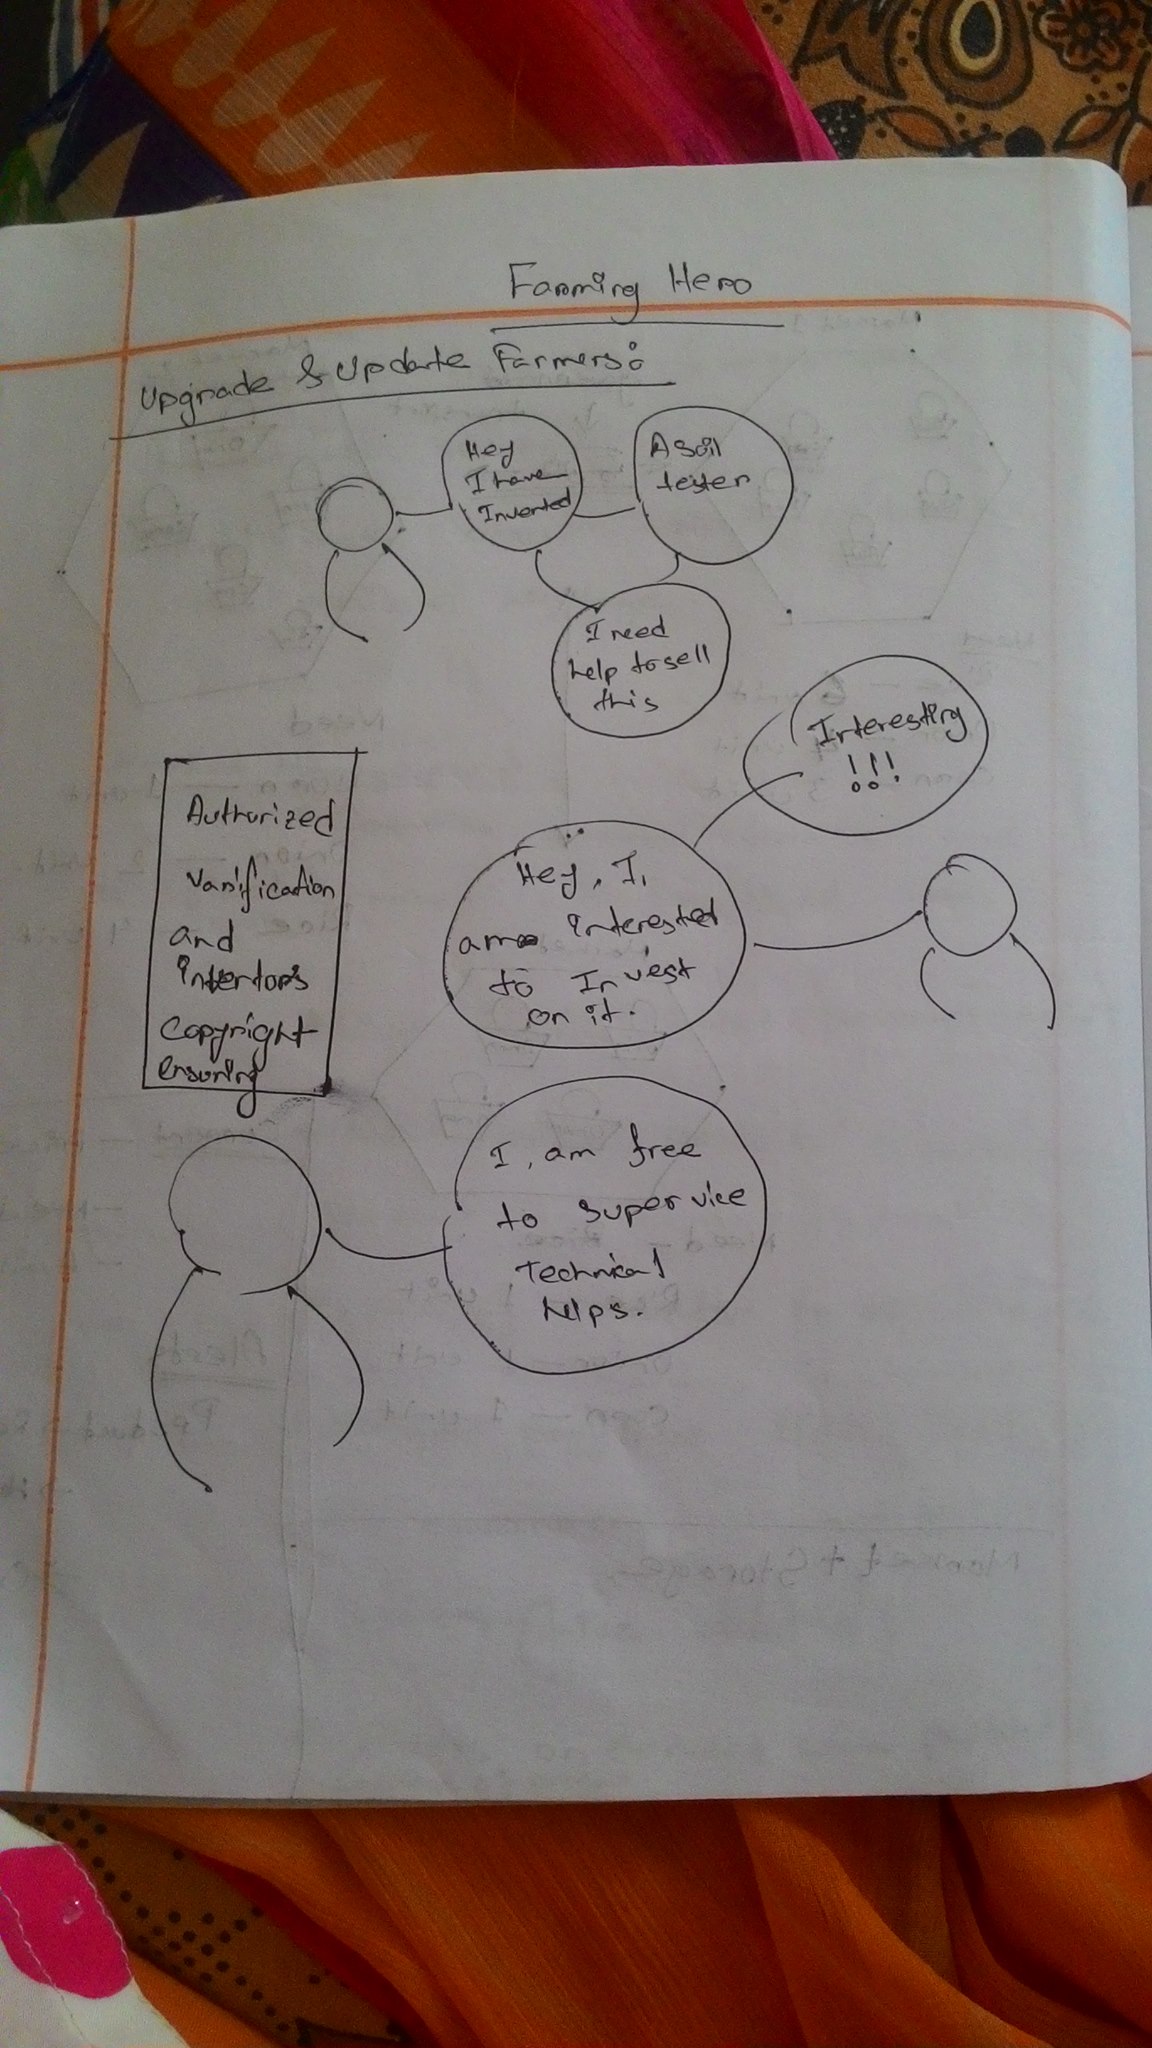 Farming Hero
Upgrade & Update Farmers:
Hey
I have
Invented
A Soil
tester
I need
help to sell
this
Interesting
!!!
Authorized
Varification
and
intentors
Copyright
ensuring
Hey, I,
am interested
to Invest
on it.
I, am free
to supervice
Technical
helps.